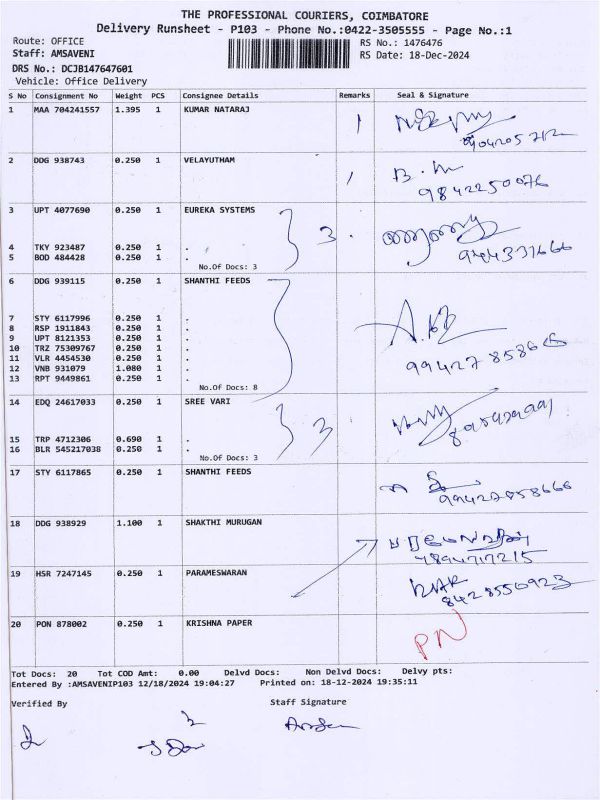 THE PROFESSIONAL COURIERS, COIMBATORE
Delivery Runsheet - P103 - Phone No.:0422-3505555 - Page No.:1
Route: OFFICE RS No.: 1476476
Staff: AMSAVENI RS Date: 18-Dec-2024
DRS No.: DCJB147647601
Vehicle: Office Delivery
S No Consignment No Weight PCS Consignee Details Remarks Seal & Signature
1 MAA 704241557 1.395 1 KUMAR NATARAJ 1
2 DDG 938743 0.250 1 VELAYUTHAM 1
9842250076
3 UPT 4077690 0.250 1 EUREKA SYSTEMS 3.
4 TKY 923487 0.250 1 .
5 BOD 484428 0.250 1 .
No.Of Docs: 3
6 DDG 939115 0.250 1 SHANTHI FEEDS
7 STY 6117996 0.250 1 .
8 RSP 1911843 0.250 1 .
9 UPT 8121353 0.250 1 .
10 TRZ 75309767 0.250 1 .
11 VLR 4454530 0.250 1 .
12 VNB 931079 1.080 1 .
13 RPT 9449861 0.250 1 .
No.Of Docs: 8
14 EDQ 24617033 0.250 1 SREE VARI 3
15 TRP 4712306 0.690 1 .
16 BLR 545217038 0.250 1 .
No.Of Docs: 3
17 STY 6117865 0.250 1 SHANTHI FEEDS
18 DDG 938929 1.100 1 SHAKTHI MURUGAN
19 HSR 7247145 0.250 1 PARAMESWARAN
8428550923
20 PON 878002 0.250 1 KRISHNA PAPER PN
Tot Docs: 20 Tot COD Amt: 0.00 Delvd Docs: Non Delvd Docs: Delvy pts:
Entered By :AMSAVENIP103 12/18/2024 19:04:27 Printed on: 18-12-2024 19:35:11
Verified By Staff Signature